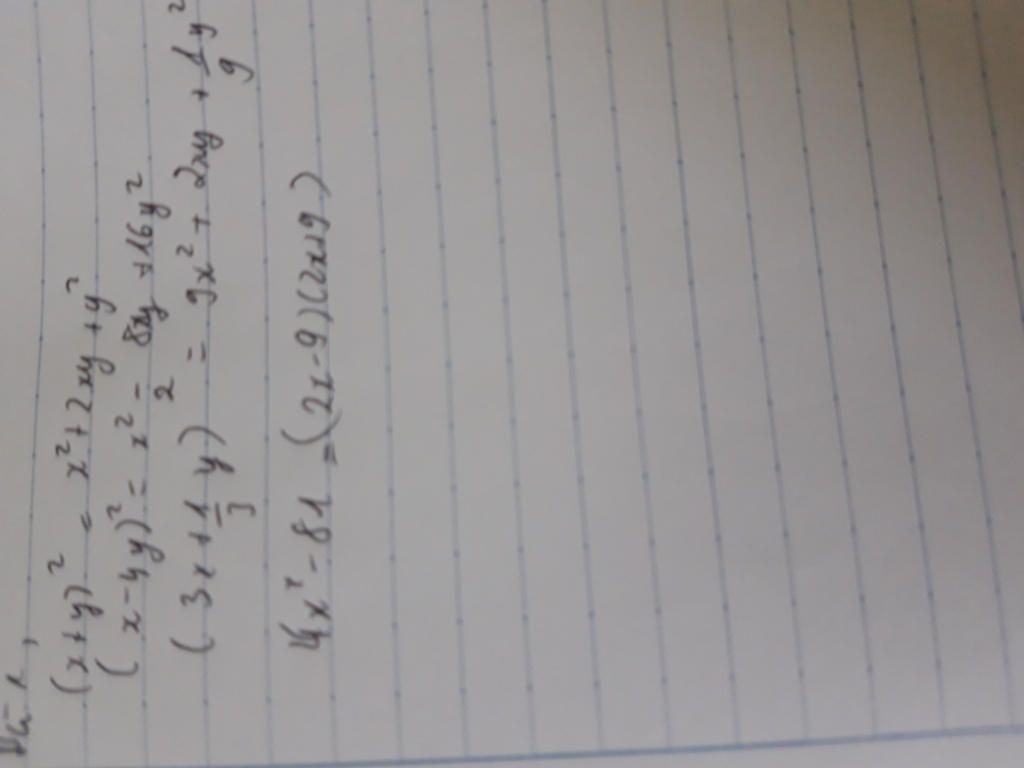 Bài 1,
(x+y)² = x²+2xy+y²
(x-4y)² = x² - 8xy +16y²
(3x+1/3 y)² = 9x²+ 2xy + 1/9 y²
4x² - 81 = (2x-9)(2x+9)